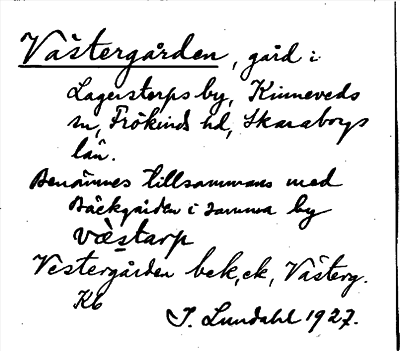 Västergården, gård i
Lagerstorps by, Kinneveds
sn, Frökinds hd, Skaraborgs
län.
Benämnes tillsammans med
Bäckgården i samma by
væ̀starp
Vestergården bek, ek, Västerg.
Kb
I. Lundahl 1927.